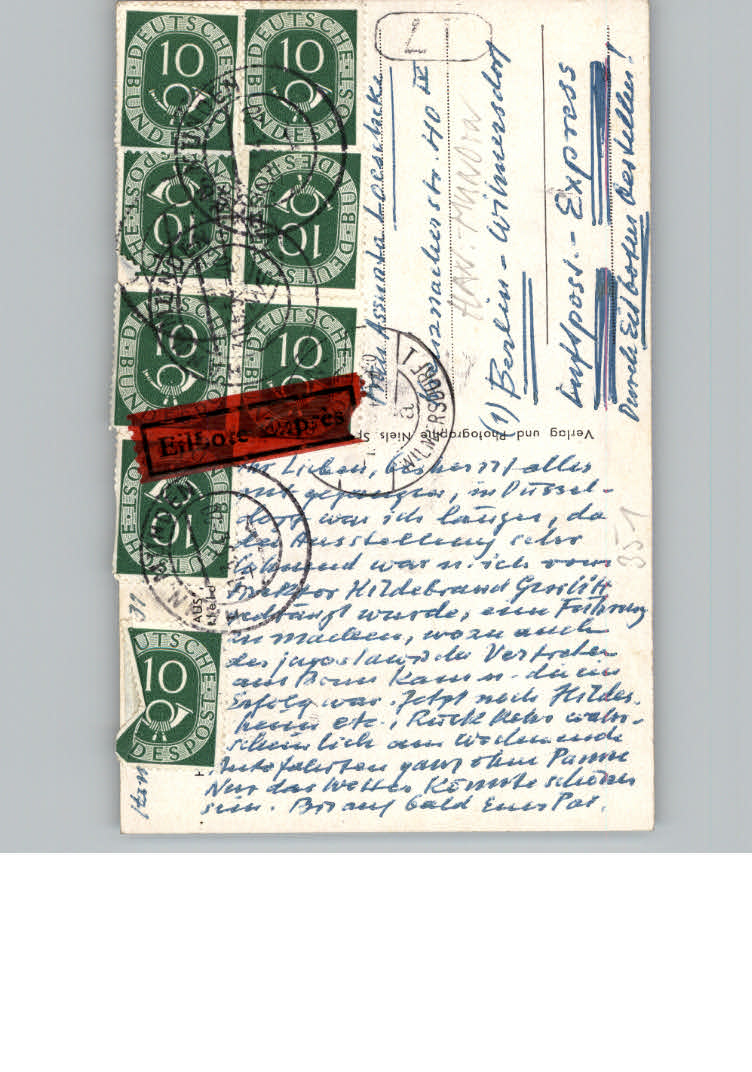 DEUTSCHE BUNDESPOST 10
DEUTSCHE BUNDESPOST 10
DEUTSCHE BUNDESPOST 10
DEUTSCHE BUNDESPOST 10
DEUTSCHE BUNDESPOST 10
DEUTSCHE BUNDESPOST 10
DEUTSCHE BUNDESPOST 10
DEUTSCHE BUNDESPOST 10
Eilbote Exprès
Assunta Loeschcke
str. 40 IV
HAN.-MÜNDEN
(1) Berlin-Wilmersdorf
Luftpost.-Express
Durch Eilboten bestellen!
Verlag und Photographie Niels
WILMERSDORF 1
a
351
Ihr Lieben, bisher ist alles
gut gegangen, in Düssel-
dorf war ich länger, da
die Ausstellung sehr
lohnend war u. ich vom
Direktor Hildebrand Gurlitt
wurde, eine Führung
zu machen, wozu auch
der jugoslawische Vertreter
aus Bonn kam u. die ein
Erfolg war. Jetzt noch Hildes-
heim etc., Rückkehr wahr-
scheinlich am Wochenende
Autofahrten ganz ohne Panne
Nur das Wetter könnte schöner
sein. Bis auf bald Euer